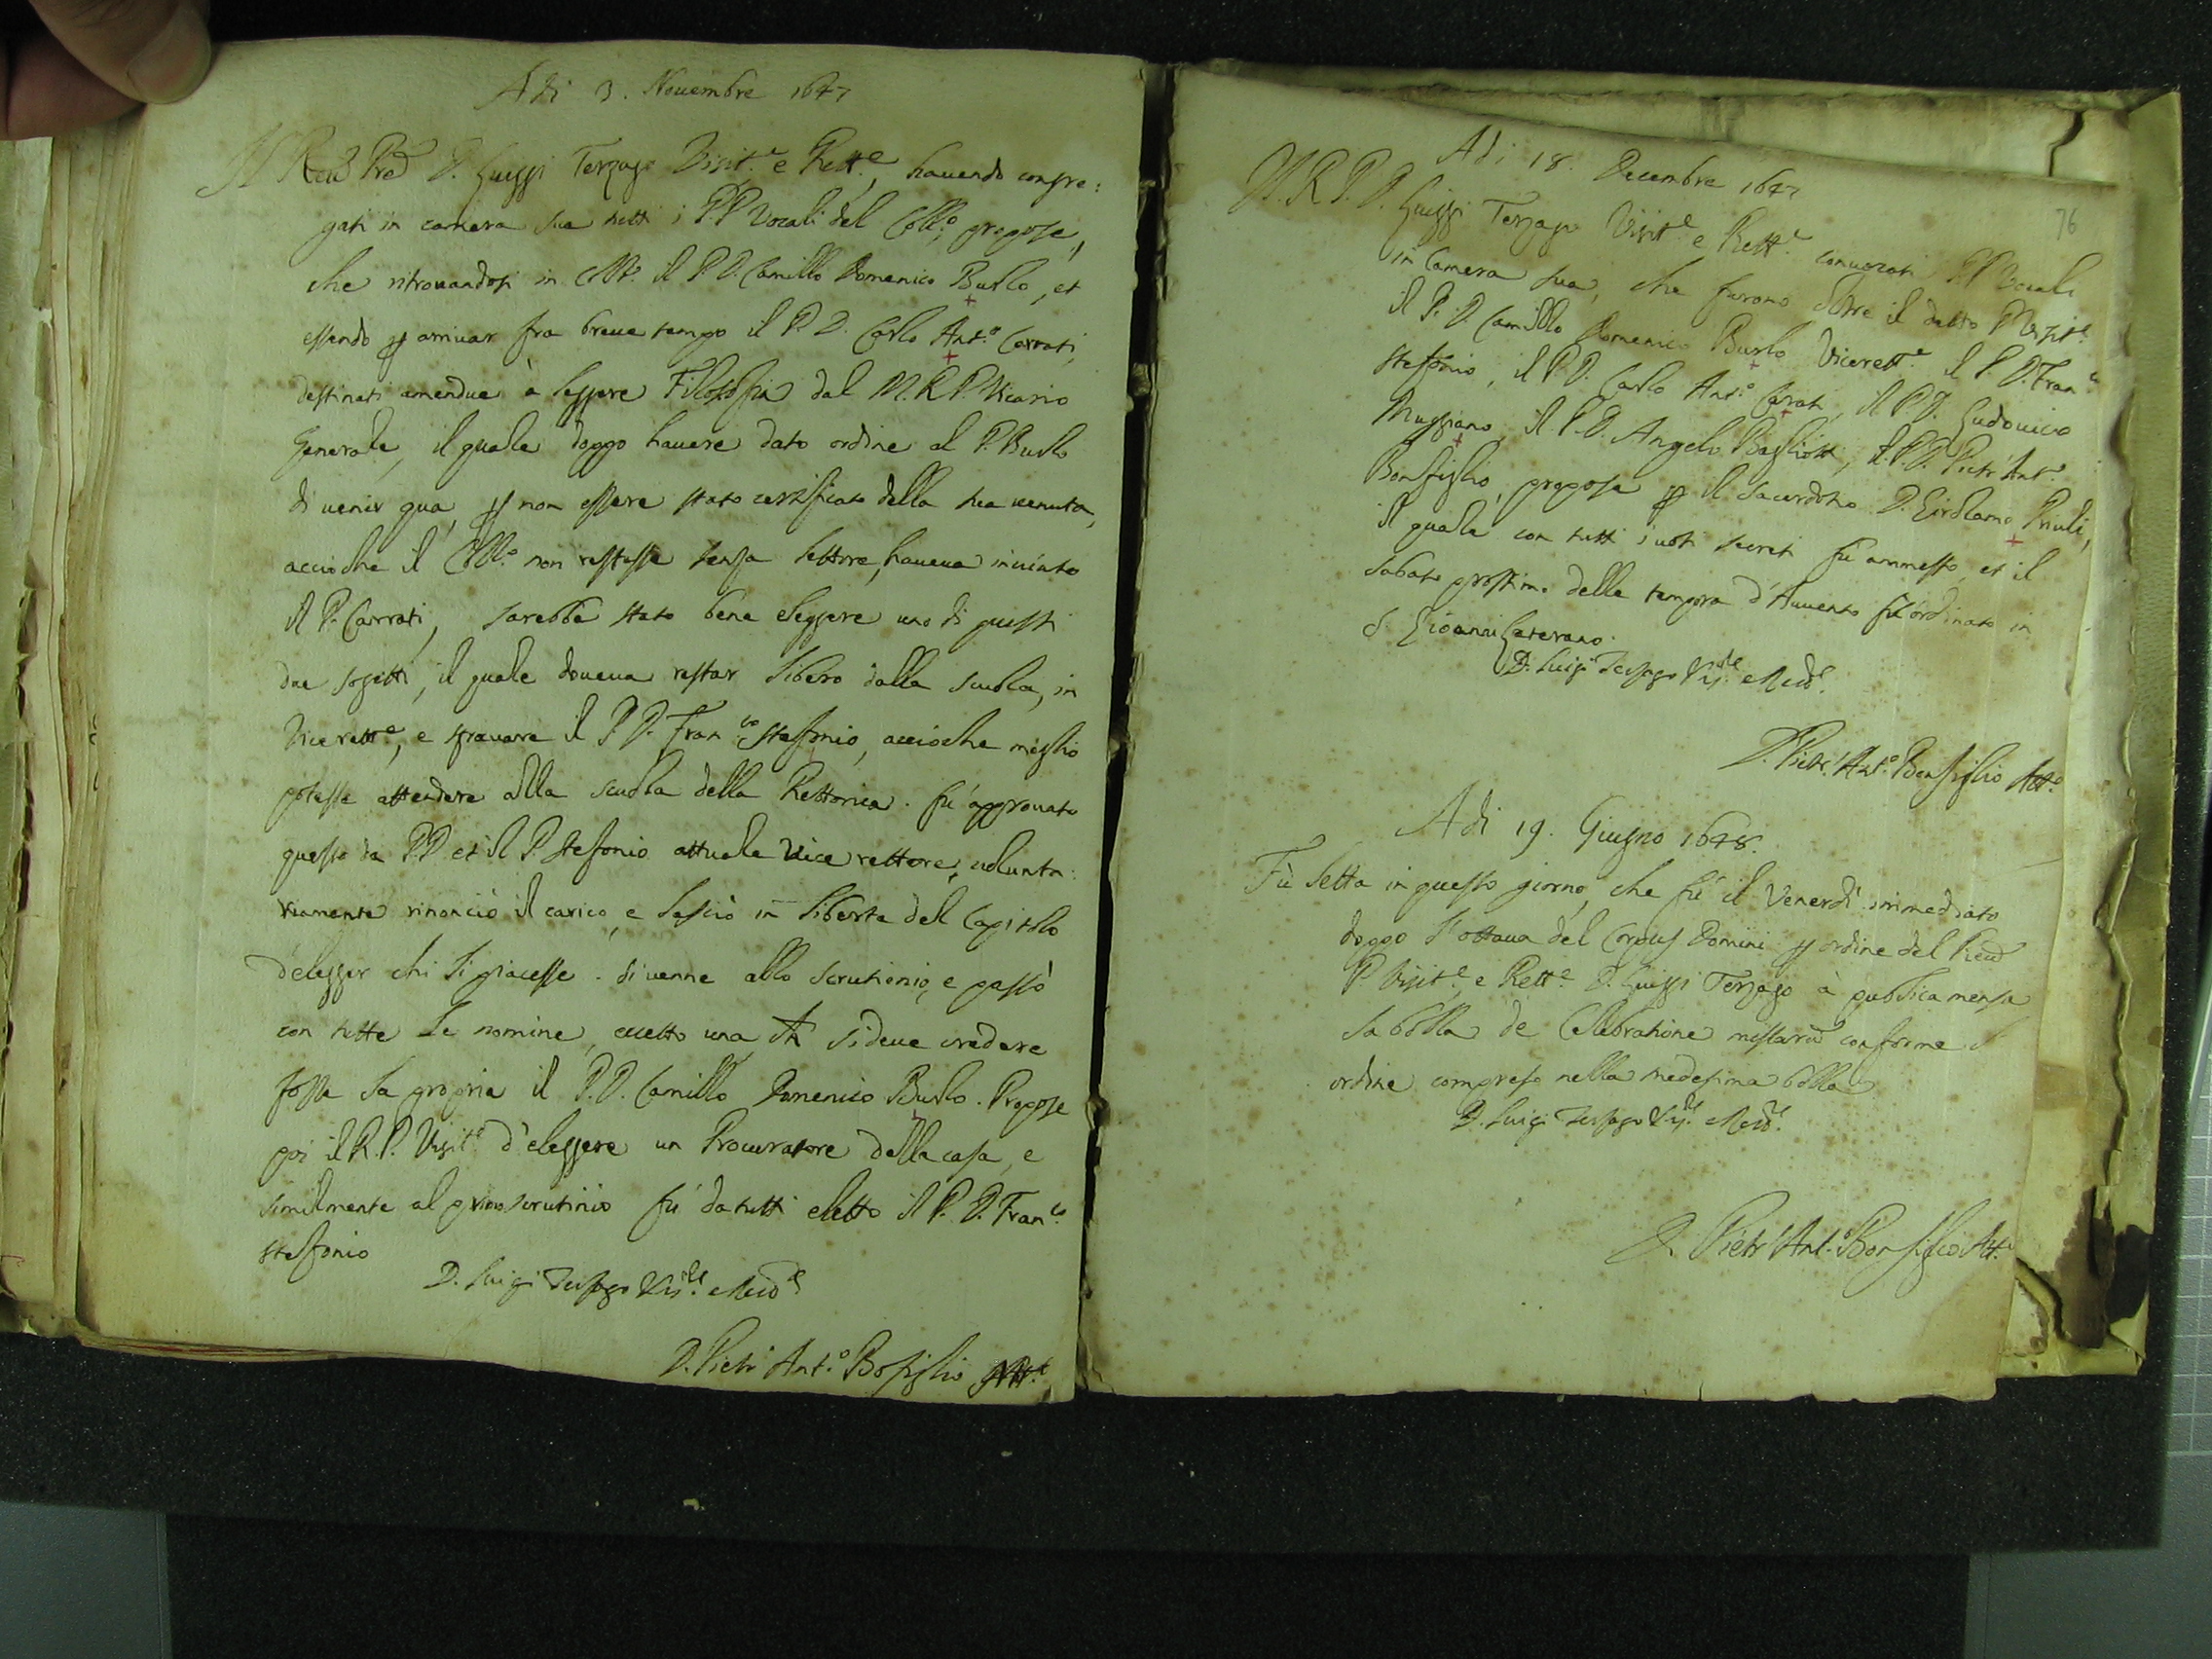 Adi 3. Nouembre 1647
Il Reud Pred D. Luiggi Terzago Visit.e e Rett.e, hauendo congre:
gati in camera sua tutti i PP Vocali del Coll.o, propose,
che ritrouandosi in Coll.o il P.D. Camillo Domenico Burlo, et
essendo p arriuar fra breue tempo il P. D. Carlo Ant.o Carrati,
destinati amendue à leggere Filosofia dal M.R.P. Vicario
Generale, il quale doppo hauere dato ordine al P. Burlo
di uenir qua, p non essere stato certificato della sua uenuta,
accioche il Coll.o non restasse senza lettore, haueua inuiato
il P. Carrati, sarebbe stato bene eleggere uno di questi
due sogetti, il quale doueua restar libero dalla scuola, in
Vicerett.e, e sgrauare il P D. Fran.co Stefonio, accioche meglio
potesse attendere alla scuola della Rettorica. fu approuato
questo da PP et il P. Stefonio attuale Vice rettore, uolunta:
riamente rinonciò il carico, e lasciò in liberta del Capitolo
d'elegger chi li piacesse. si uenne allo scrutinio, e passò
con tutte le nomine, eccetto una ch si deue credere
fosse la propria il P.D. Camillo Domenico Burlo. Propose
poi il R.P. Visit.e d'eleggere un Procuratore della casa, e
similmente al primo scrutinio fu da tutti eletto il P. D. Fran.co
Stefonio
D. Luigi Terzago Vis.re e Rett.e
D. Pietr' Ant.o Bofiglio Att.o
76
Adi 18. Decembre 1647
Il R.P.D. Luiggi Terzago Visit.e e Rett.e conuocati PP Vocali
in Camera sua, che furono oltre il detto P Visit.e
il P. D. Camillo Domenico Burlo Vicerett.e il P D. Fran.co
Stefonio, il P.D. Carlo Ant.o Carrati, il P.D. Ludouico
Muggiano, il P.D. Angelo Bagliotti, il P.D. Pietr' Ant.o
Bonfiglio, propose p il sacerdotio D. Girolamo Priuli,
il quale con tutti i uoti secreti fu ammesso, et il
sabato prossimo delle tempora d'Auuento fu ordinato in
S. Gioanni Laterano.
D. Luigi Terzago Vis.re e Rett.e
D. Pietr' Ant.o Bonfiglio Att.o
Adi 19. Giugno 1648.
Fù letta in questo giorno, che fu il Venerdì immediato
doppo l'ottaua del Corpus Domini p ordine del Reud
P Visit.e e Rett.e D. Luiggi Terzago à publica mensa
la bolla de Celebratione missarũ conforme l'
ordine compreso nella medesima bolla
D. Luigi Terzago Vis.re e Rett.e
D. Pietr' Ant.o Bonfiglio Att.o